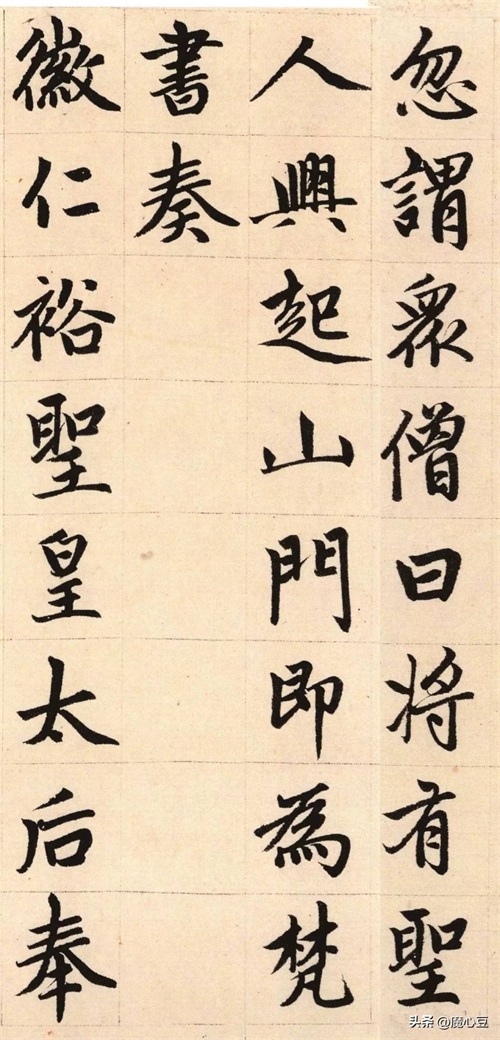 忽謂衆僧曰將有聖
人興起山門即為梵
書奏
徽仁裕聖皇太后奉
头条 @魔心豆